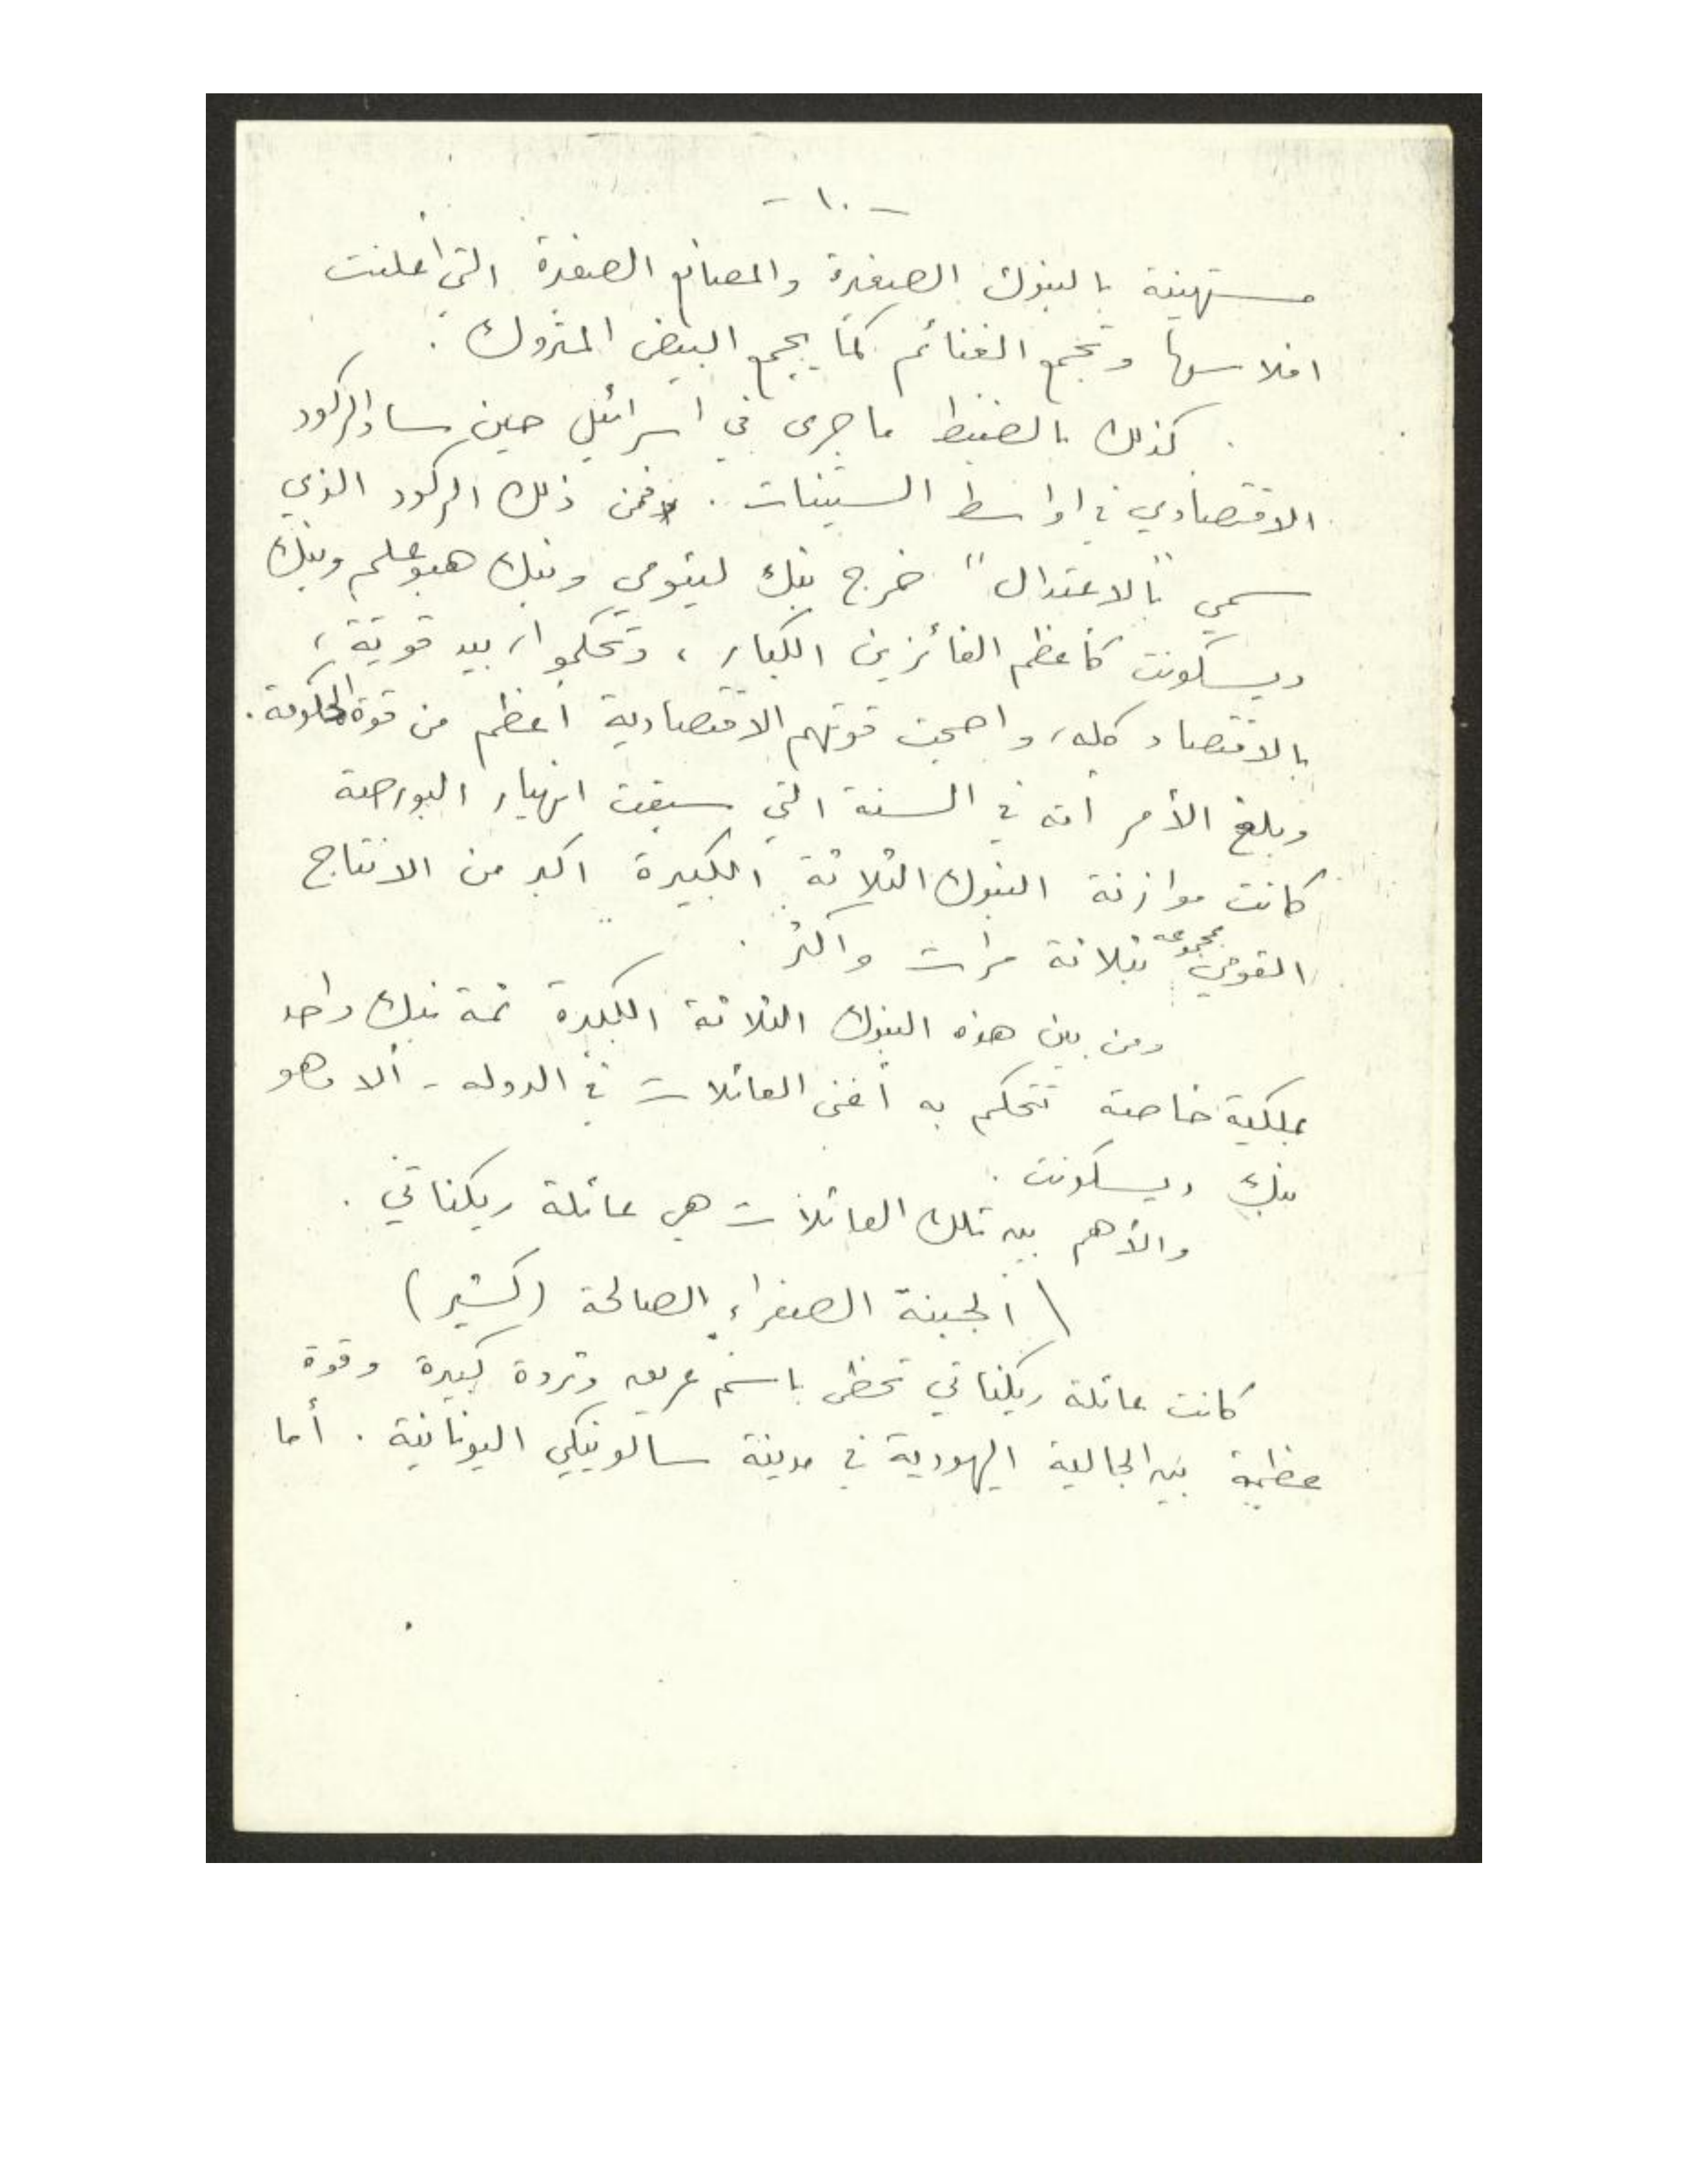 - ١٠ -
مستهينة بالبنوك الصغيرة والمصانع الصغيرة التي أعلنت
افلاسها وتجمع الغنائم كما يجمع البيض المتروك .
كذلك بالضبط ما جرى في اسرائيل حين ساد الركود
الاقتصادي في اواسط الستينات . فمن ذلك الركود الذي
سمي "بالاعتدال" خرج بنك ليئومي وبنك هبوعليم وبنك
ديسكونت كأعظم الفائزين الكبار ، وتحكموا، بيد قوية ،
بالاقتصاد كله، واصبحت قوتهم الاقتصادية أعظم من قوة الحكومة .
وبلغ الأمر أنه في السنة التي سبقت انهيار البورصة
كانت موازنة البنوك الثلاثة الكبيرة اكبر من الانتاج
القومي مجموعه بثلاثة مرات واكثر .
ومن بين هذه البنوك الثلاثة الكبيرة ثمة بنك واحد
بملكية خاصة تتحكم به أغنى العائلات في الدولة - ألا وهو
بنك ديسكونت .
والأهم بين تلك العائلات هي عائلة ريكناتي .
الجبنة الصفراء الصالحة (كشير)
كانت عائلة ريكناتي تحظى باسم عريق وثروة كبيرة وقوة
عظيمة بين الجالية اليهودية في مدينة سالونيكي اليونانية . أما